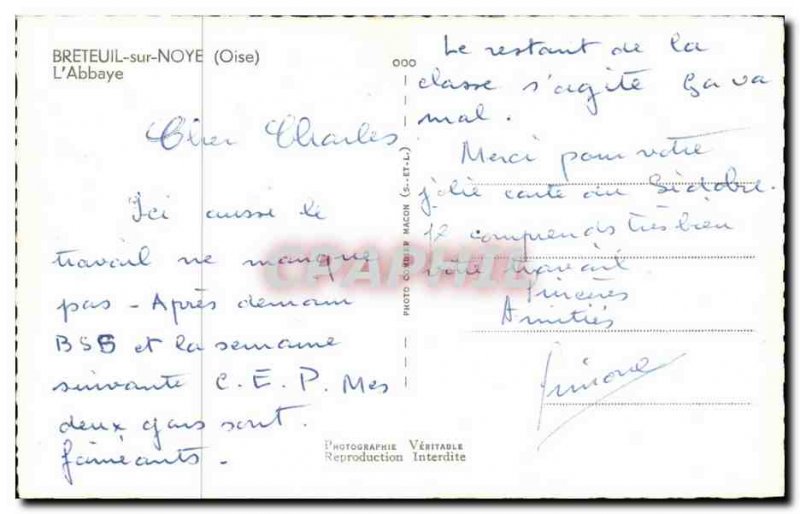 BRETEUIL-sur-NOYE (Oise)
L'Abbaye
Cher Charles
Ici aussi le
travail ne manque
pas - Après demain
BSS et la semaine
suivante C.E.P. Mes
deux gars sont
fainéants.
Le restant de la
classe s'agite ça va
mal.
Merci pour votre
jolie carte du Sidobre.
Je comprends très bien
votre travail
Sincères
Amitiés
Simone
000
PHOTO COMBIER MACON (S.-ET-L.)
PHOTOGRAPHIE VÉRITABLE
Reproduction Interdite
CPAPHIL